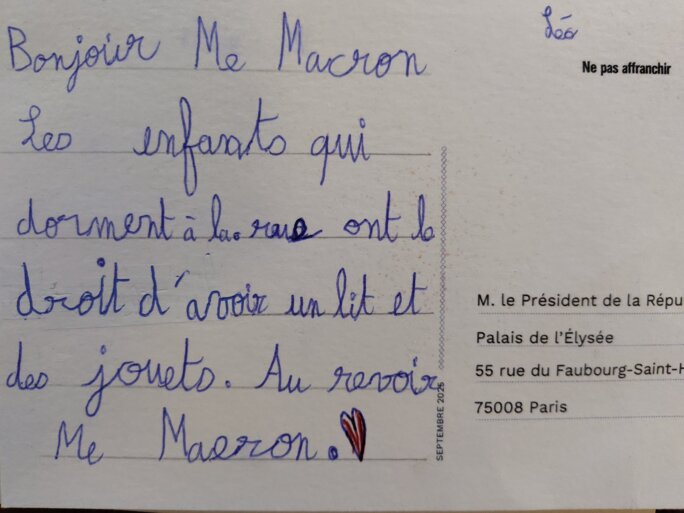 Bonjour Me Macron
Les enfants qui
dorment à la rue ont le
droit d'avoir un lit et
des jouets. Au revoir
Me Macron.
Léo
Ne pas affranchir
SEPTEMBRE 2025
M. le Président de la Répu
Palais de l'Élysée
55 rue du Faubourg-Saint-H
75008 Paris